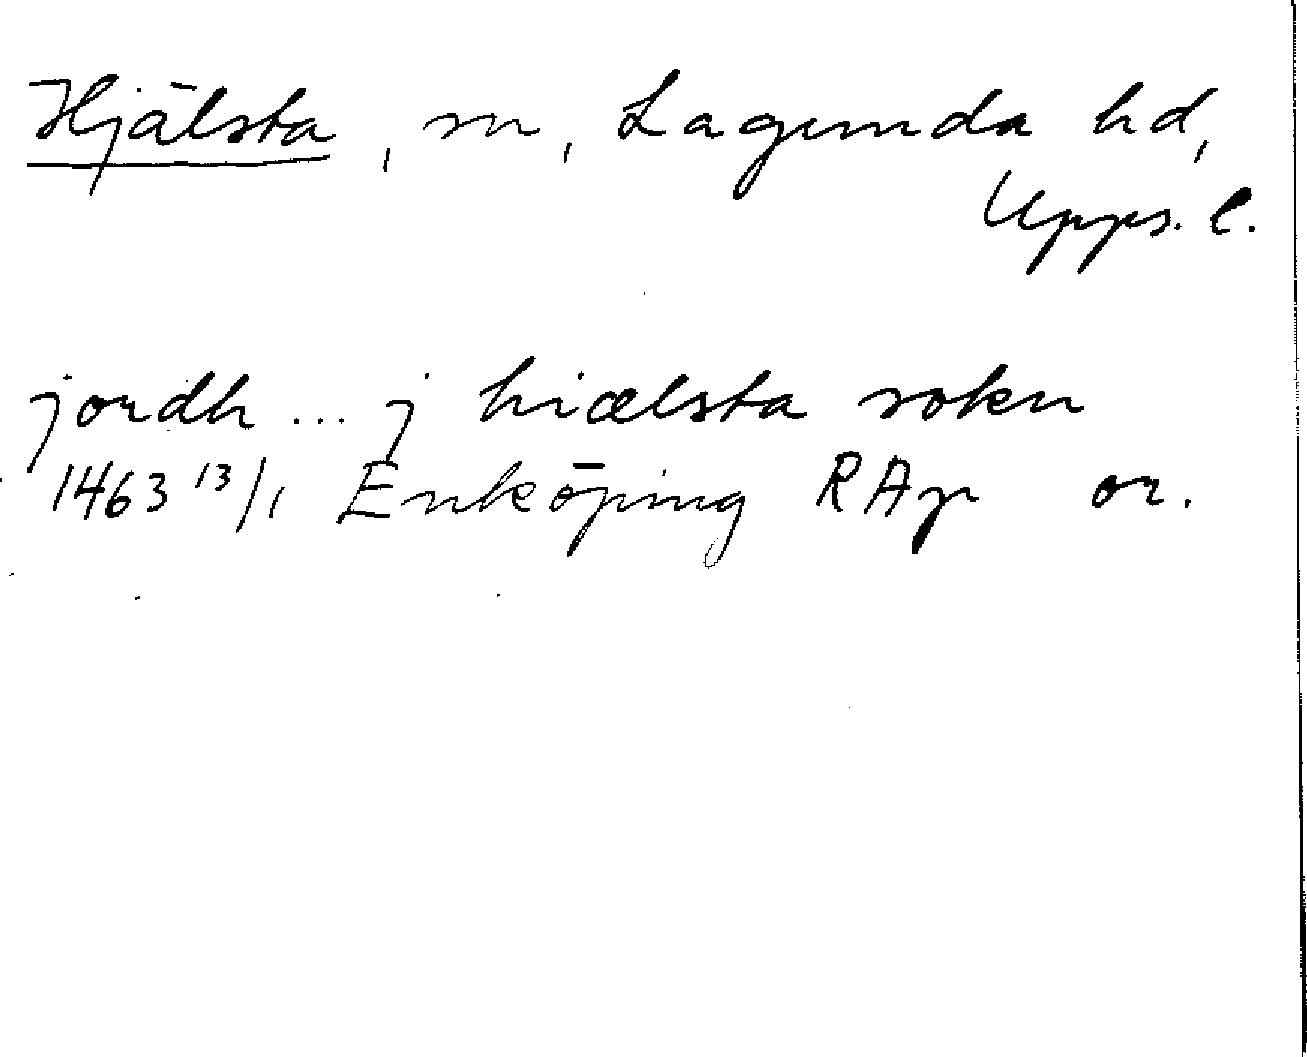 Hjälsta, sn, Lagunda hd,
Upps. l.
jordh ... j hiælsta sokn
1463 13/1 Enköping RAp or.